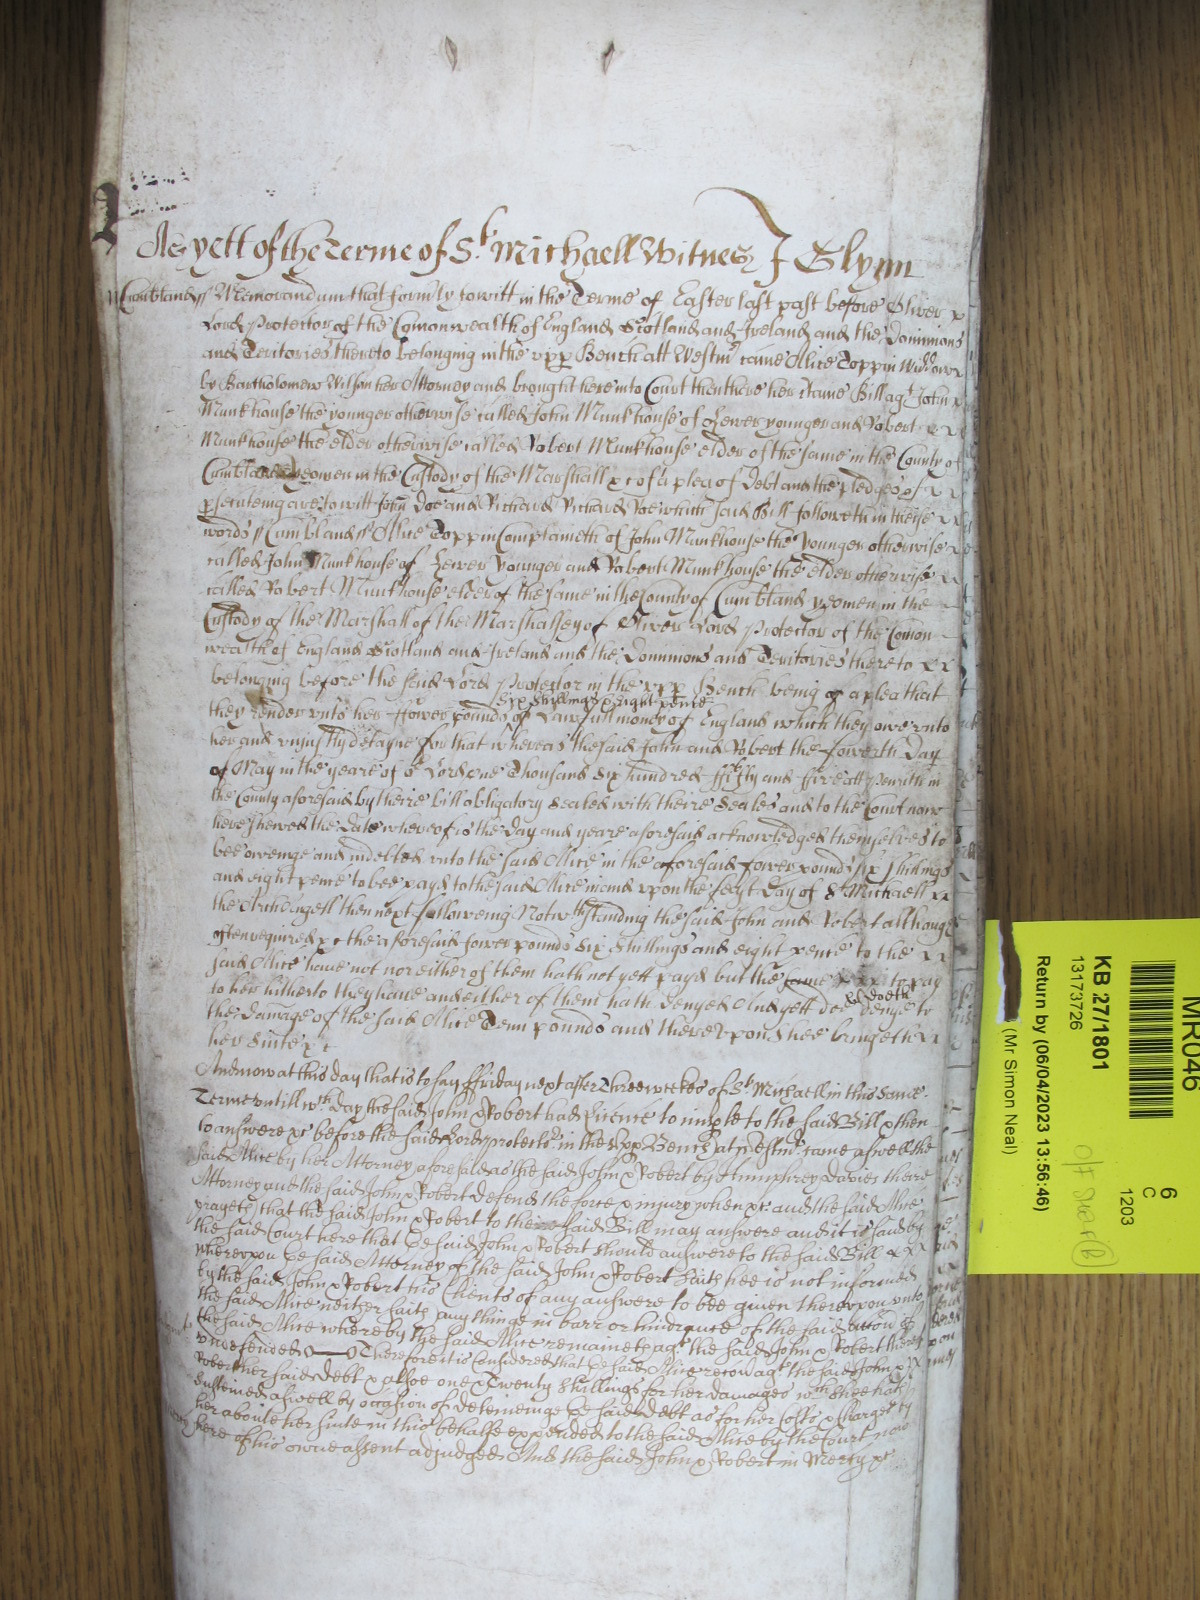 As yett of the Terme of St Michaell Witnes J Glynn
Cumbland ss Memorandum that formly to witt in the Terme of Easter last past before Oliver
Lord Protector of the Comonwealth of England Scotland and Ireland and the Dominions
and Teritories thereto belonging in the upp Bench att Westmr came Alice Toppin Widdowe
by Bartholomew Wilson her Attorney and brought here into Court then there her Bill agt John
Munkhouse the younger otherwise called John Munkhouse of younger and Robert
Munkhouse the elder otherwise called Robert Munkhouse elder of the same in the County of
Cumbland yeomen in the Custody of the Marshall &c of a plea of Debt and the pledges of
psecuteing are to witt John Doe and Richard Richard Roe which said Bill followeth in theise
words ss Cumbland ss Alice Toppin Complaineth of John Munkhouse the younger otherwise
called John Munkhouse of younger and Robert Munkhouse the elder otherwise
called Robert Munkhouse elder of the same in the County of Cumbland yeomen in the
Custody of the Marshall of the Marshalsey of Oliver Lord Protector of the Comon
wealth of England Scotland and Ireland and the Dominions and Teritories thereto
belonging before the said Lord Protector in the upp Bench being of a plea that
Six Shillings & Eight pence
they render unto her fower pounds of Lawfull money of England which they owe unto
her and unjustly detayne for that whereas the said John and Robert the fowerth Day
of May in the yeare of or Lord one Thousand six hundred fifty and five att Penrith in
the County aforesaid by theire bill obligatory sealed with theire Seales and to the Court now
here shewed the date whereof is the Day and yeare aforesaid acknowledged themselves to
bee oweinge and indebted unto the said Alice in the aforesaid fower pounds six shillings
and eight pence to bee payd to the said Alice in and upon the feast Day of St Michaell
the Archangell then next followeing Notwthstanding the said John and Robert although
often required &c the aforesaid fower pounds six shillings and eight pence to the
said Alice have not nor either of them hath not yett payd but the same to pay
to her hitherto they have and either of them hath denyed And yett doe and doeth denye to
the damage of the said Alice Tenn pounds and thereupon shee bringeth
her suite &c
And now at this day that is to say ffriday next after Three weekes of St Michaell in this same
Terme untill wch day the said John & Robert had Licence to imple to the said Bill & then
to answere &c before the said Lord protector in the Upp Bench at Westmr came aswell the
said Alice by her Attorney aforesaid as the said John & Robert by Humphrey Davies there
Attorney and the said John & Robert defend the force & injury when &c and the said Alice
prayeth that the said John & Robert to the said Bill may answere and it is said by
the said Court here that the said John & Robert should answere to the said Bill
Whereupon the said Attorney of the said John & Robert saith hee is not informed
by the said John & Robert his Clients of any answere to bee given thereupon unto
the said Alice neither saith any thinge in barr or hindrance of the said accon of
the said Alice whereby the said Alice remaineth agt the said John & Robert therein
undefended Therefore it is considered that the said Alice recover agt the said John &
Robert her said debt & alsoe one & Twenty Shillings for her damages wch shee hath
susteined aswell by occasion of deteineinge the said debt as for her costs & charges by
her aboute her suite in this behalfe expended to the said Alice by the Court now
here of his owne assent adjudged And the said John & Robert in Mercy &c
MR046
KB 27/1801
13173726
Return by (06/04/2023 13:56:46)
(Mr Simon Neal)
6
C
1203